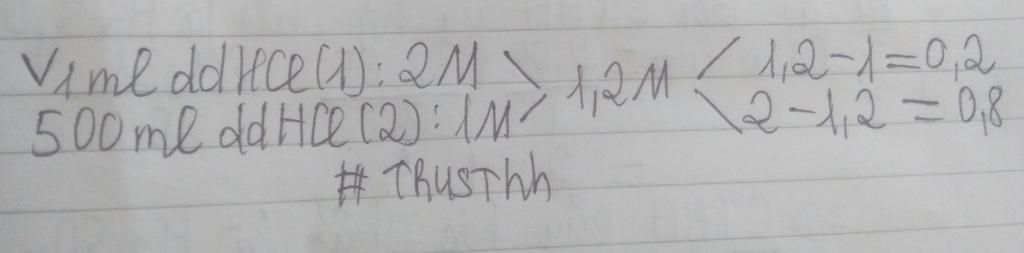 V1ml ddHCl(1): 2M \ 1,2M / 1,2-1=0,2
500ml ddHCl(2): 1M / \ 2-1,2=0,8
# TRUSThh